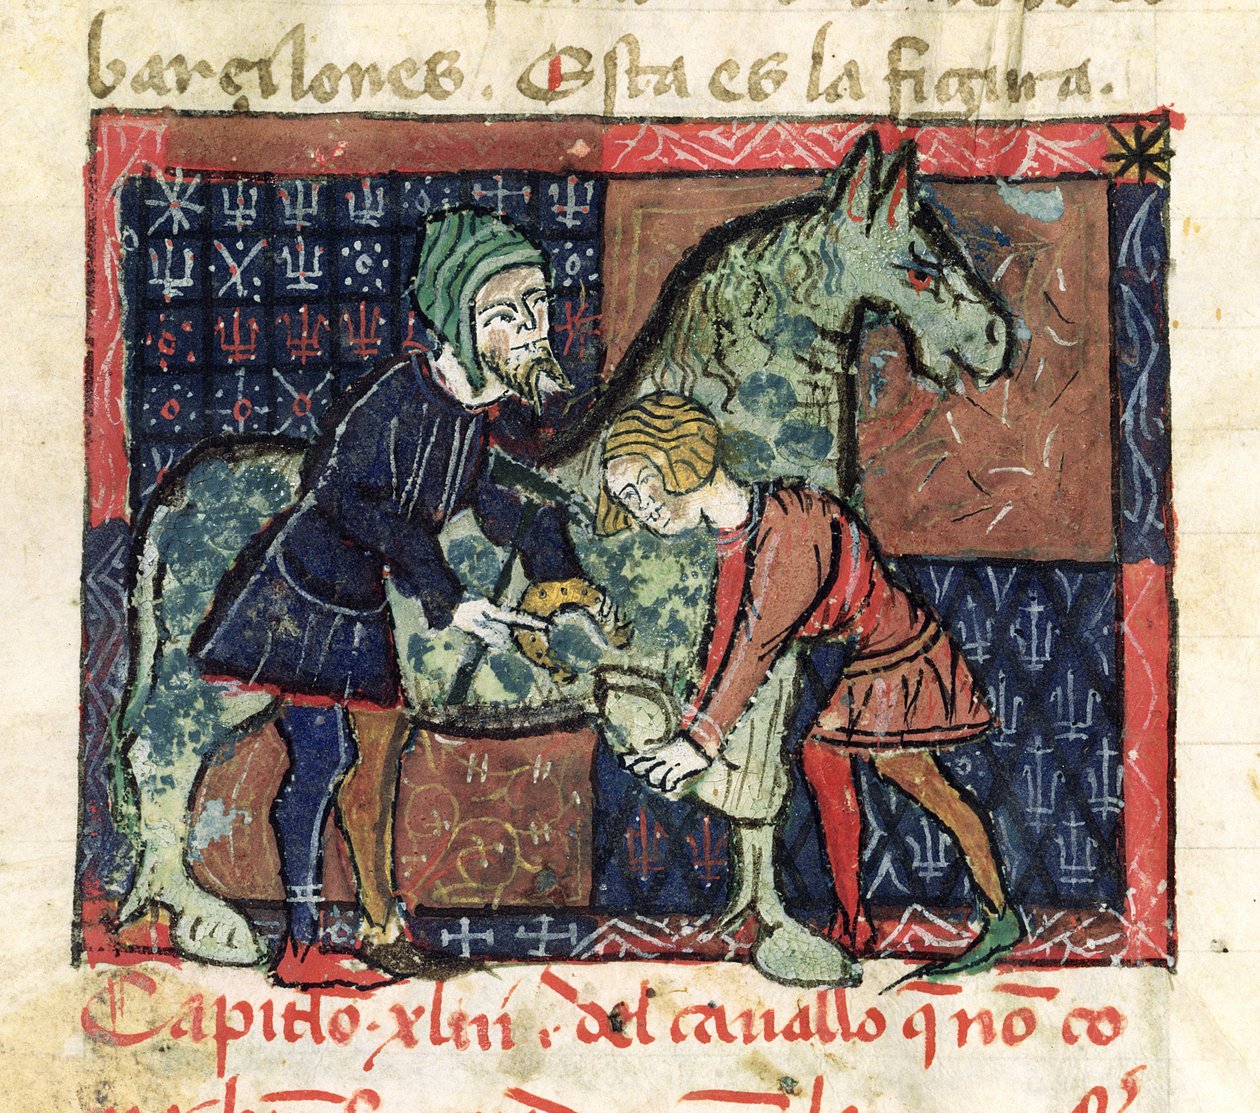 barçilones. Esta es la figura.
Capitlo. xliii. del cauallo q̄ nō co